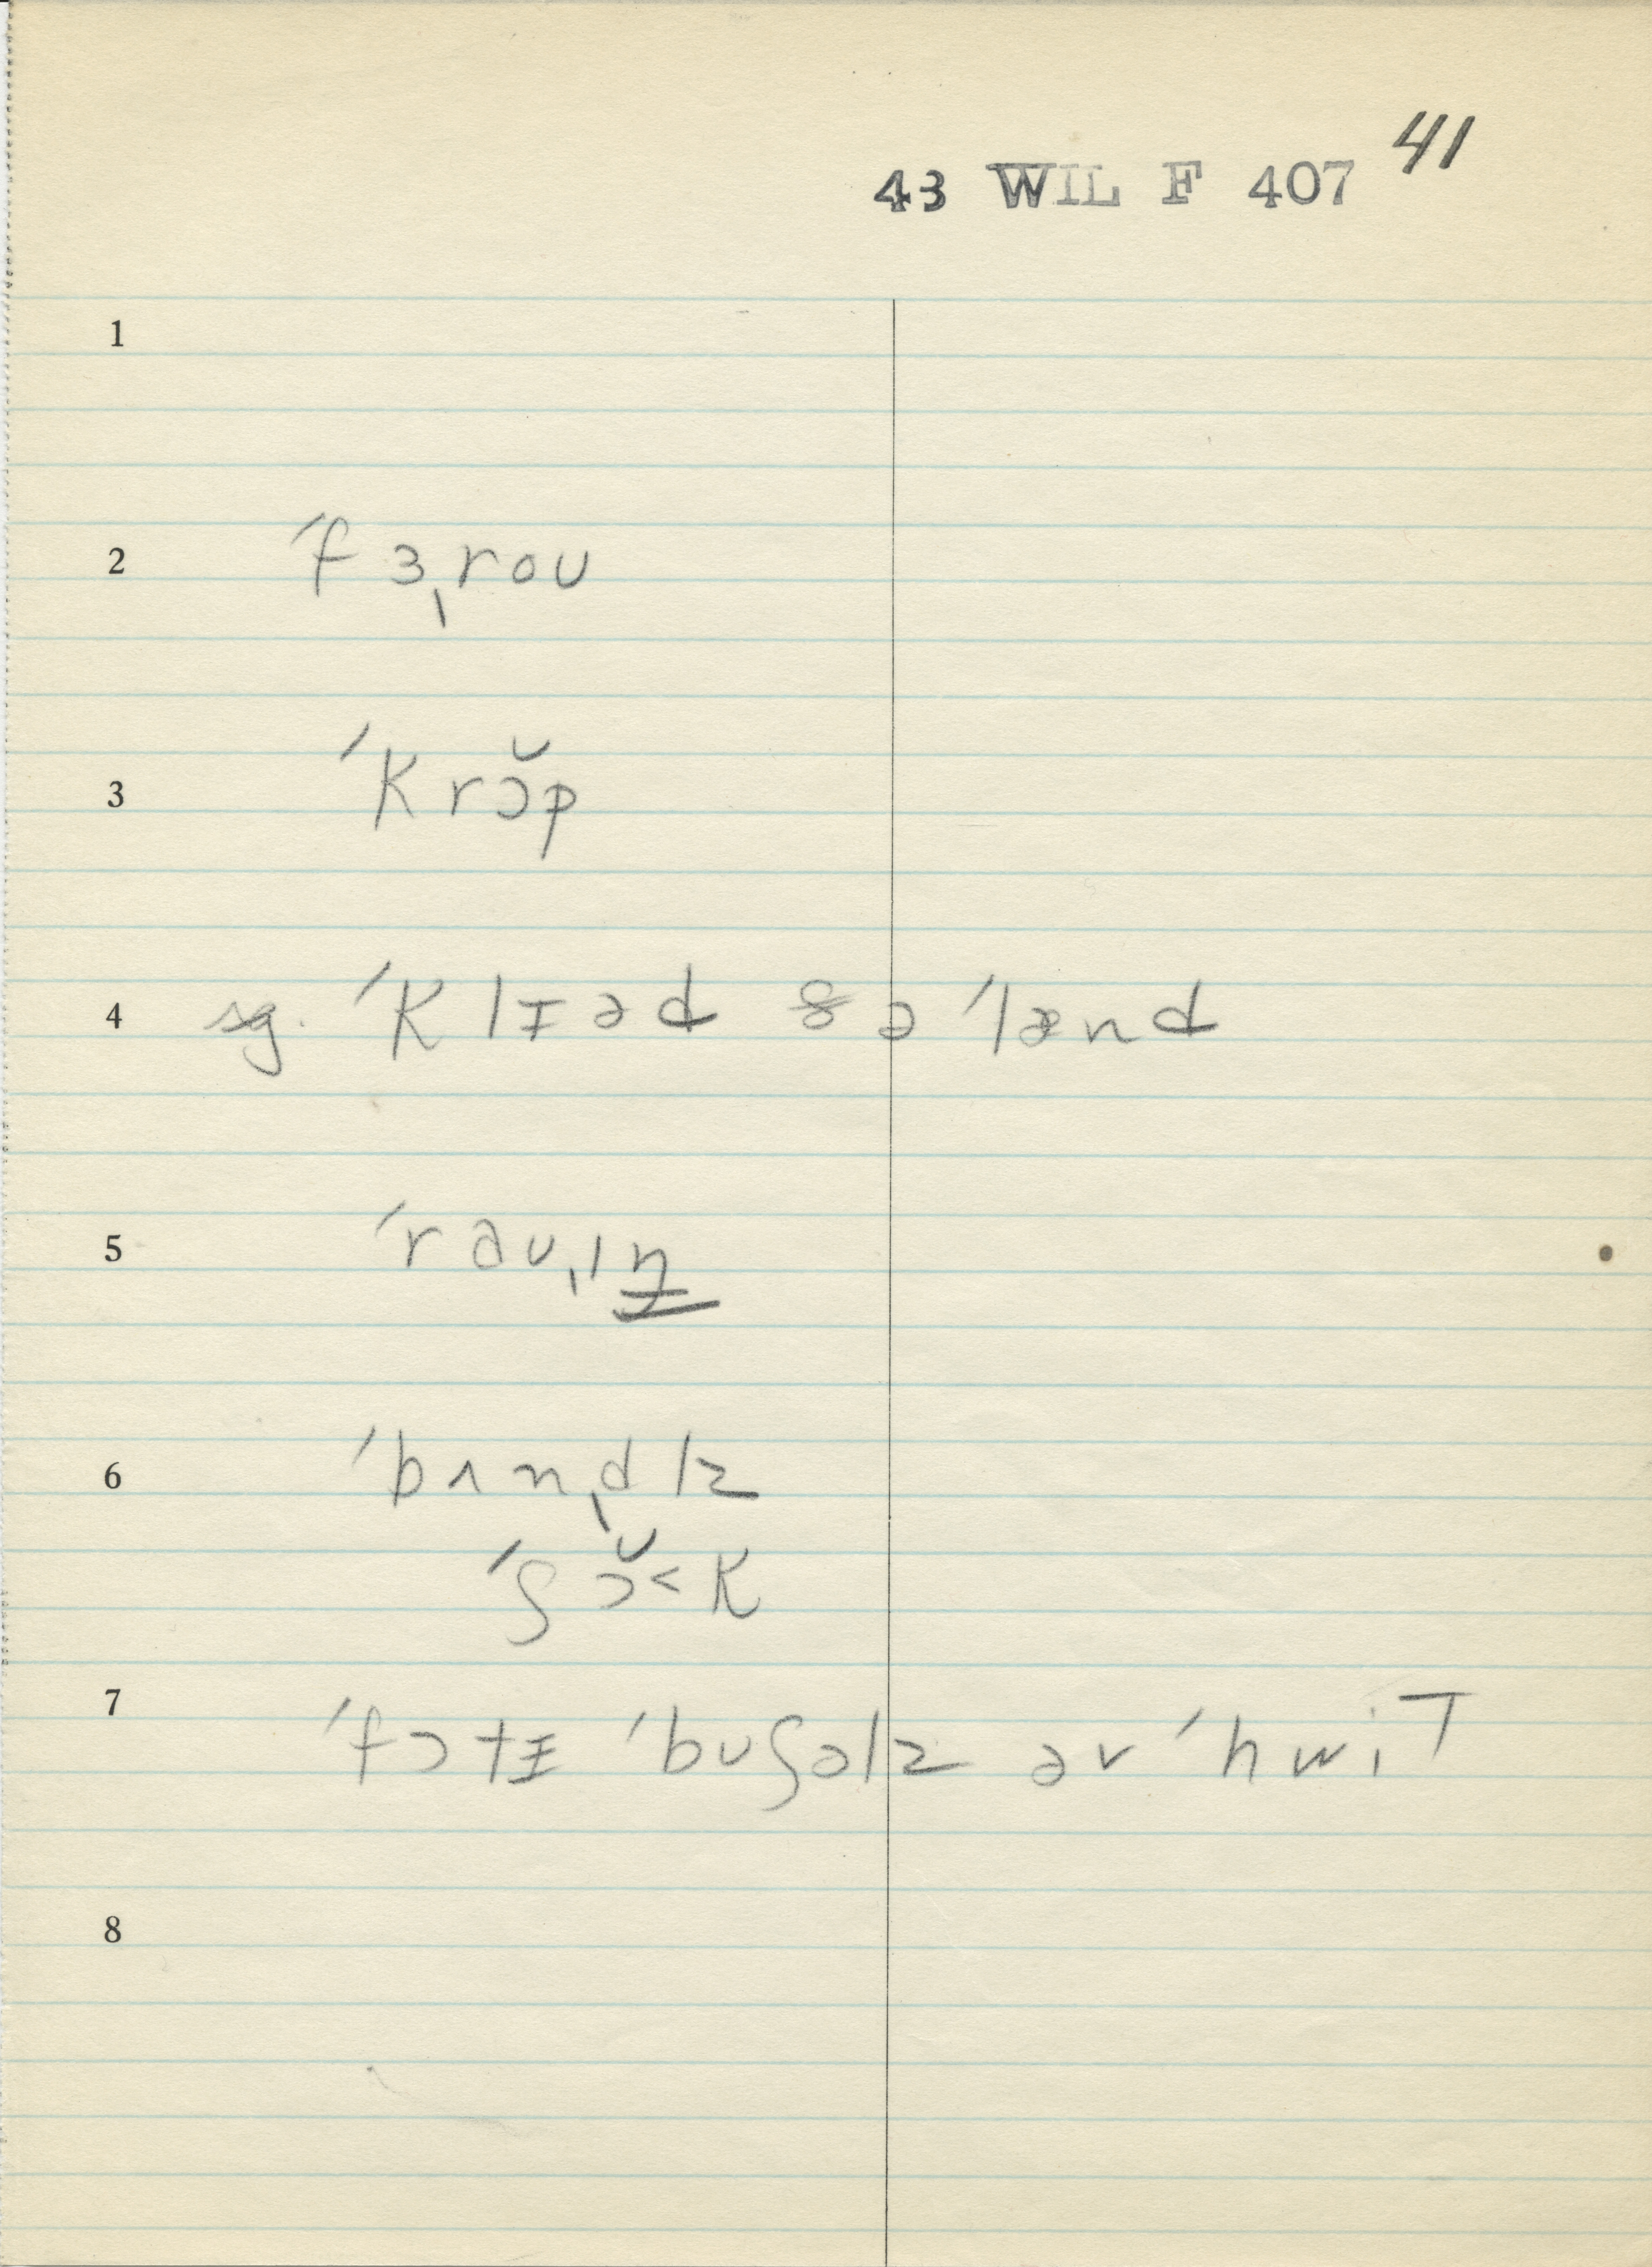 41
43 WIL F 407
1
2 ˈfɜˌroʊ
3 ˈkrɔ̆p
4 sg. ˈklɪəd ðə ˈlænd
5 ˈrəʊˌɪŋ
6 ˈbʌnˌdlz
ˈʃɔ̆˂k
7 ˈfɔtɪ ˈbʊʃəlz əv ˈhwit
8